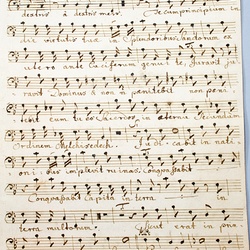 dextris à dextris meis. Tecum principium in
die virtutis tuæ in splendoribus sanctorum ex
utero ante Luciferum genui te, Juravit ju
ravit Dominus & non pænitebit non pæni.
tebit eum tu es Sacerdos in æternum Secundum
Ordinem Melchisedech. Judicabit in nati
onibus implevit ruinas Conquassabit
Conquassabit capita in terra in
terra multorum. erat in